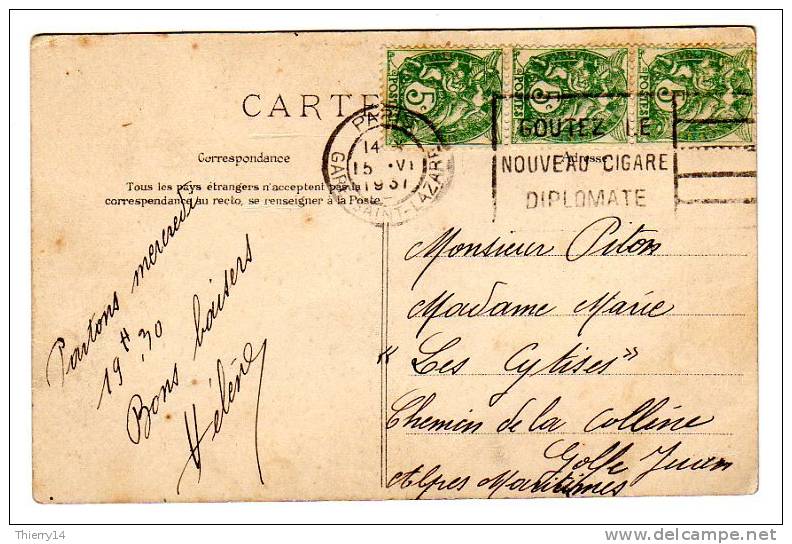 5c POSTES
5c POSTES
5c POSTES
CARTE
PARIS
14
15 VI
1937
GARE SAINT-LAZARE
GOUTEZ LE
NOUVEAU CIGARE
DIPLOMATE
Correspondance
Adresse
Tous les pays étrangers n'acceptent pas la
correspondance au recto, se renseigner à la Poste.
Partons mercredi
19 H 30
Bons baisers
Hélène
Monsieur Piton
Madame Marie
"Les Cytises"
Chemin de la Colline
Golfe Juan
Alpes Maritimes
Thierry14
delcampe.net